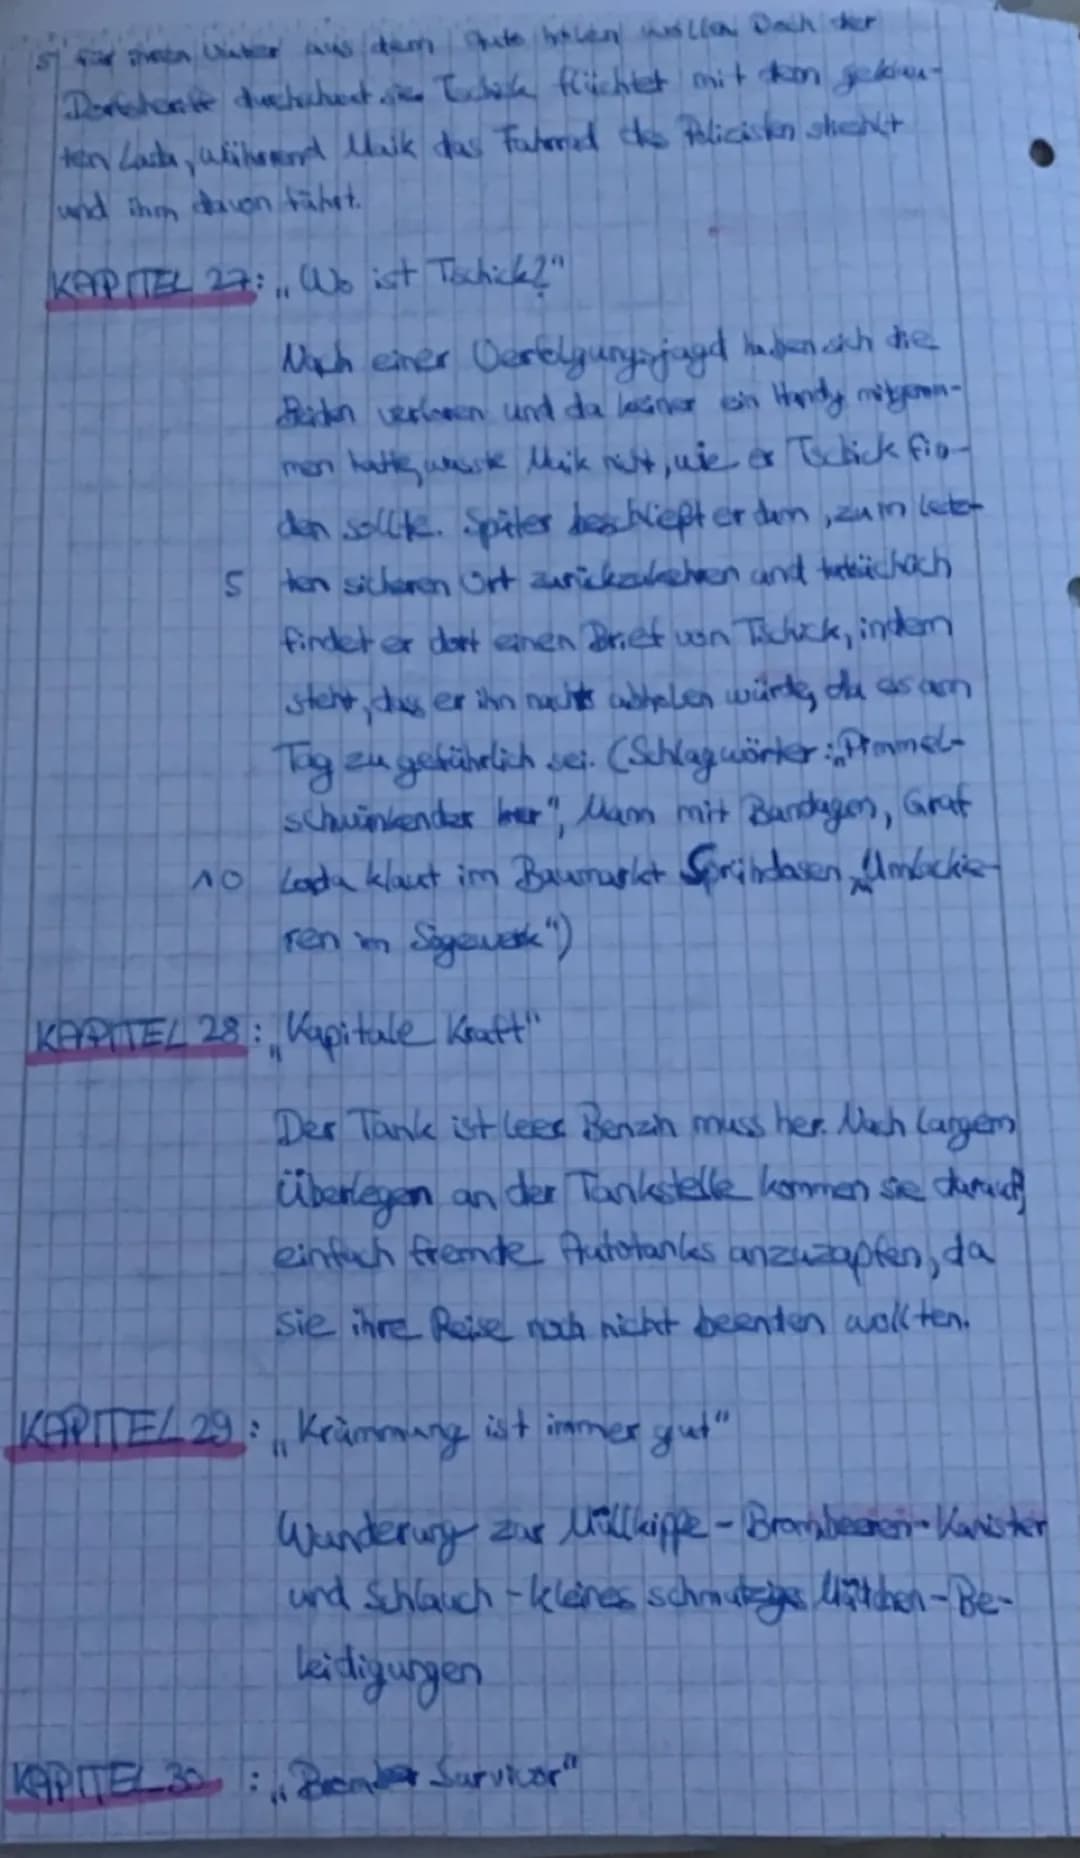 5 für ihren Vater aus dem Auto holen wollen Doch der
Dorfsheriff durchschaut sie. Tschick flüchtet mit dem geklau-
ten Lada, während Maik das Fahrrad des Polizisten stiehlt
und ihm davon fährt.
KAPITEL 27: „Wo ist Tschick?"
Nach einer Verfolgungsjagd haben sich die
Beiden verloren und da keiner ein Handy mitgenom-
men hatte, wusste Maik nicht, wie er Tschick fin-
den sollte. Später beschließt er dann, zum letz-
5 ten sicheren Ort zurückzukehren und tatsächlich
findet er dort einen Brief von Tschick, indem
steht, dass er ihn nachts abholen würde, da es am
Tag zu gefährlich sei. (Schlagwörter: „Pimmel-
schwinkender", Mann mit Bandagen, Graf
10 Lada klaut im Baumarkt Sprühdosen, „Umlackie-
ren im Sägewerk")
KAPITEL 28: „Kapitale Kraft"
Der Tank ist leer Benzin muss her. Nach langem
Überlegen an der Tankstelle kommen sie darauf,
einfach fremde Autotanks anzuzapfen, da
sie ihre Reise noch nicht beenden wollten.
KAPITEL 29: „Krümmung ist immer gut"
Wanderung zur Müllkippe - Brombeeren - Kanister
und Schlauch - kleines schmutziges Mädchen - Be-
leidigungen
KAPITEL 30: „Survivor"